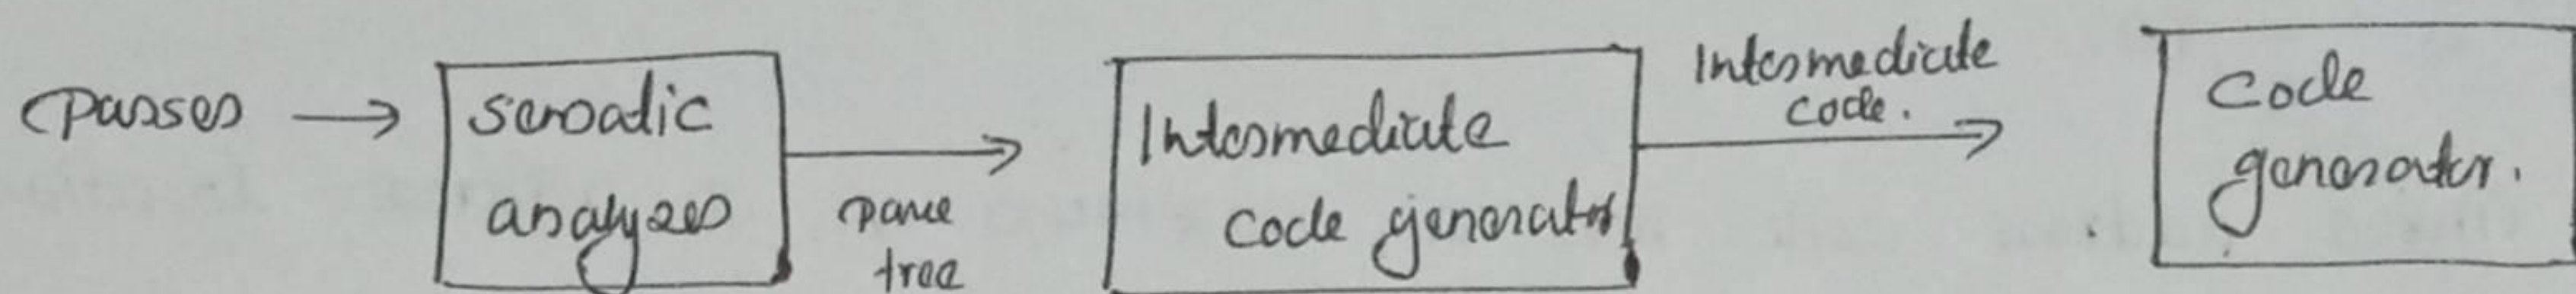 Parser
Semantic
analyzer
parse
tree
Intermediate
code generator
Intermediate
code.
Code
generator.